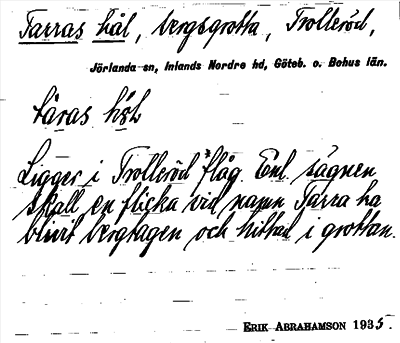 Tarras hål, bergsgrotta, Trolleröd,
Jörlanda sn, Inlands Nordre hd, Göteb. o. Bohus län.
taras hål
Ligger i Trolleröd flåg. Enl. sägnen
skall en flicka vid namn Tarra ha
blivit bergtagen och hittad i grottan.
ERIK ABRAHAMSON 1935.